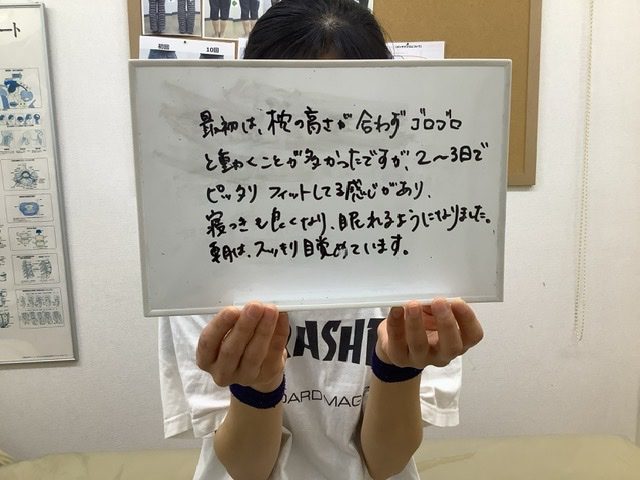 ート
初回
10回
最初は、枕の高さが合わずゴロゴロ
と動くことが多かったですが、2〜3日で
ピッタリフィットしてる感じがあり、
寝つきも良くなり、眠れるようになりました。
朝は、スッキリ目覚めています。
RASHE
OARD MAG